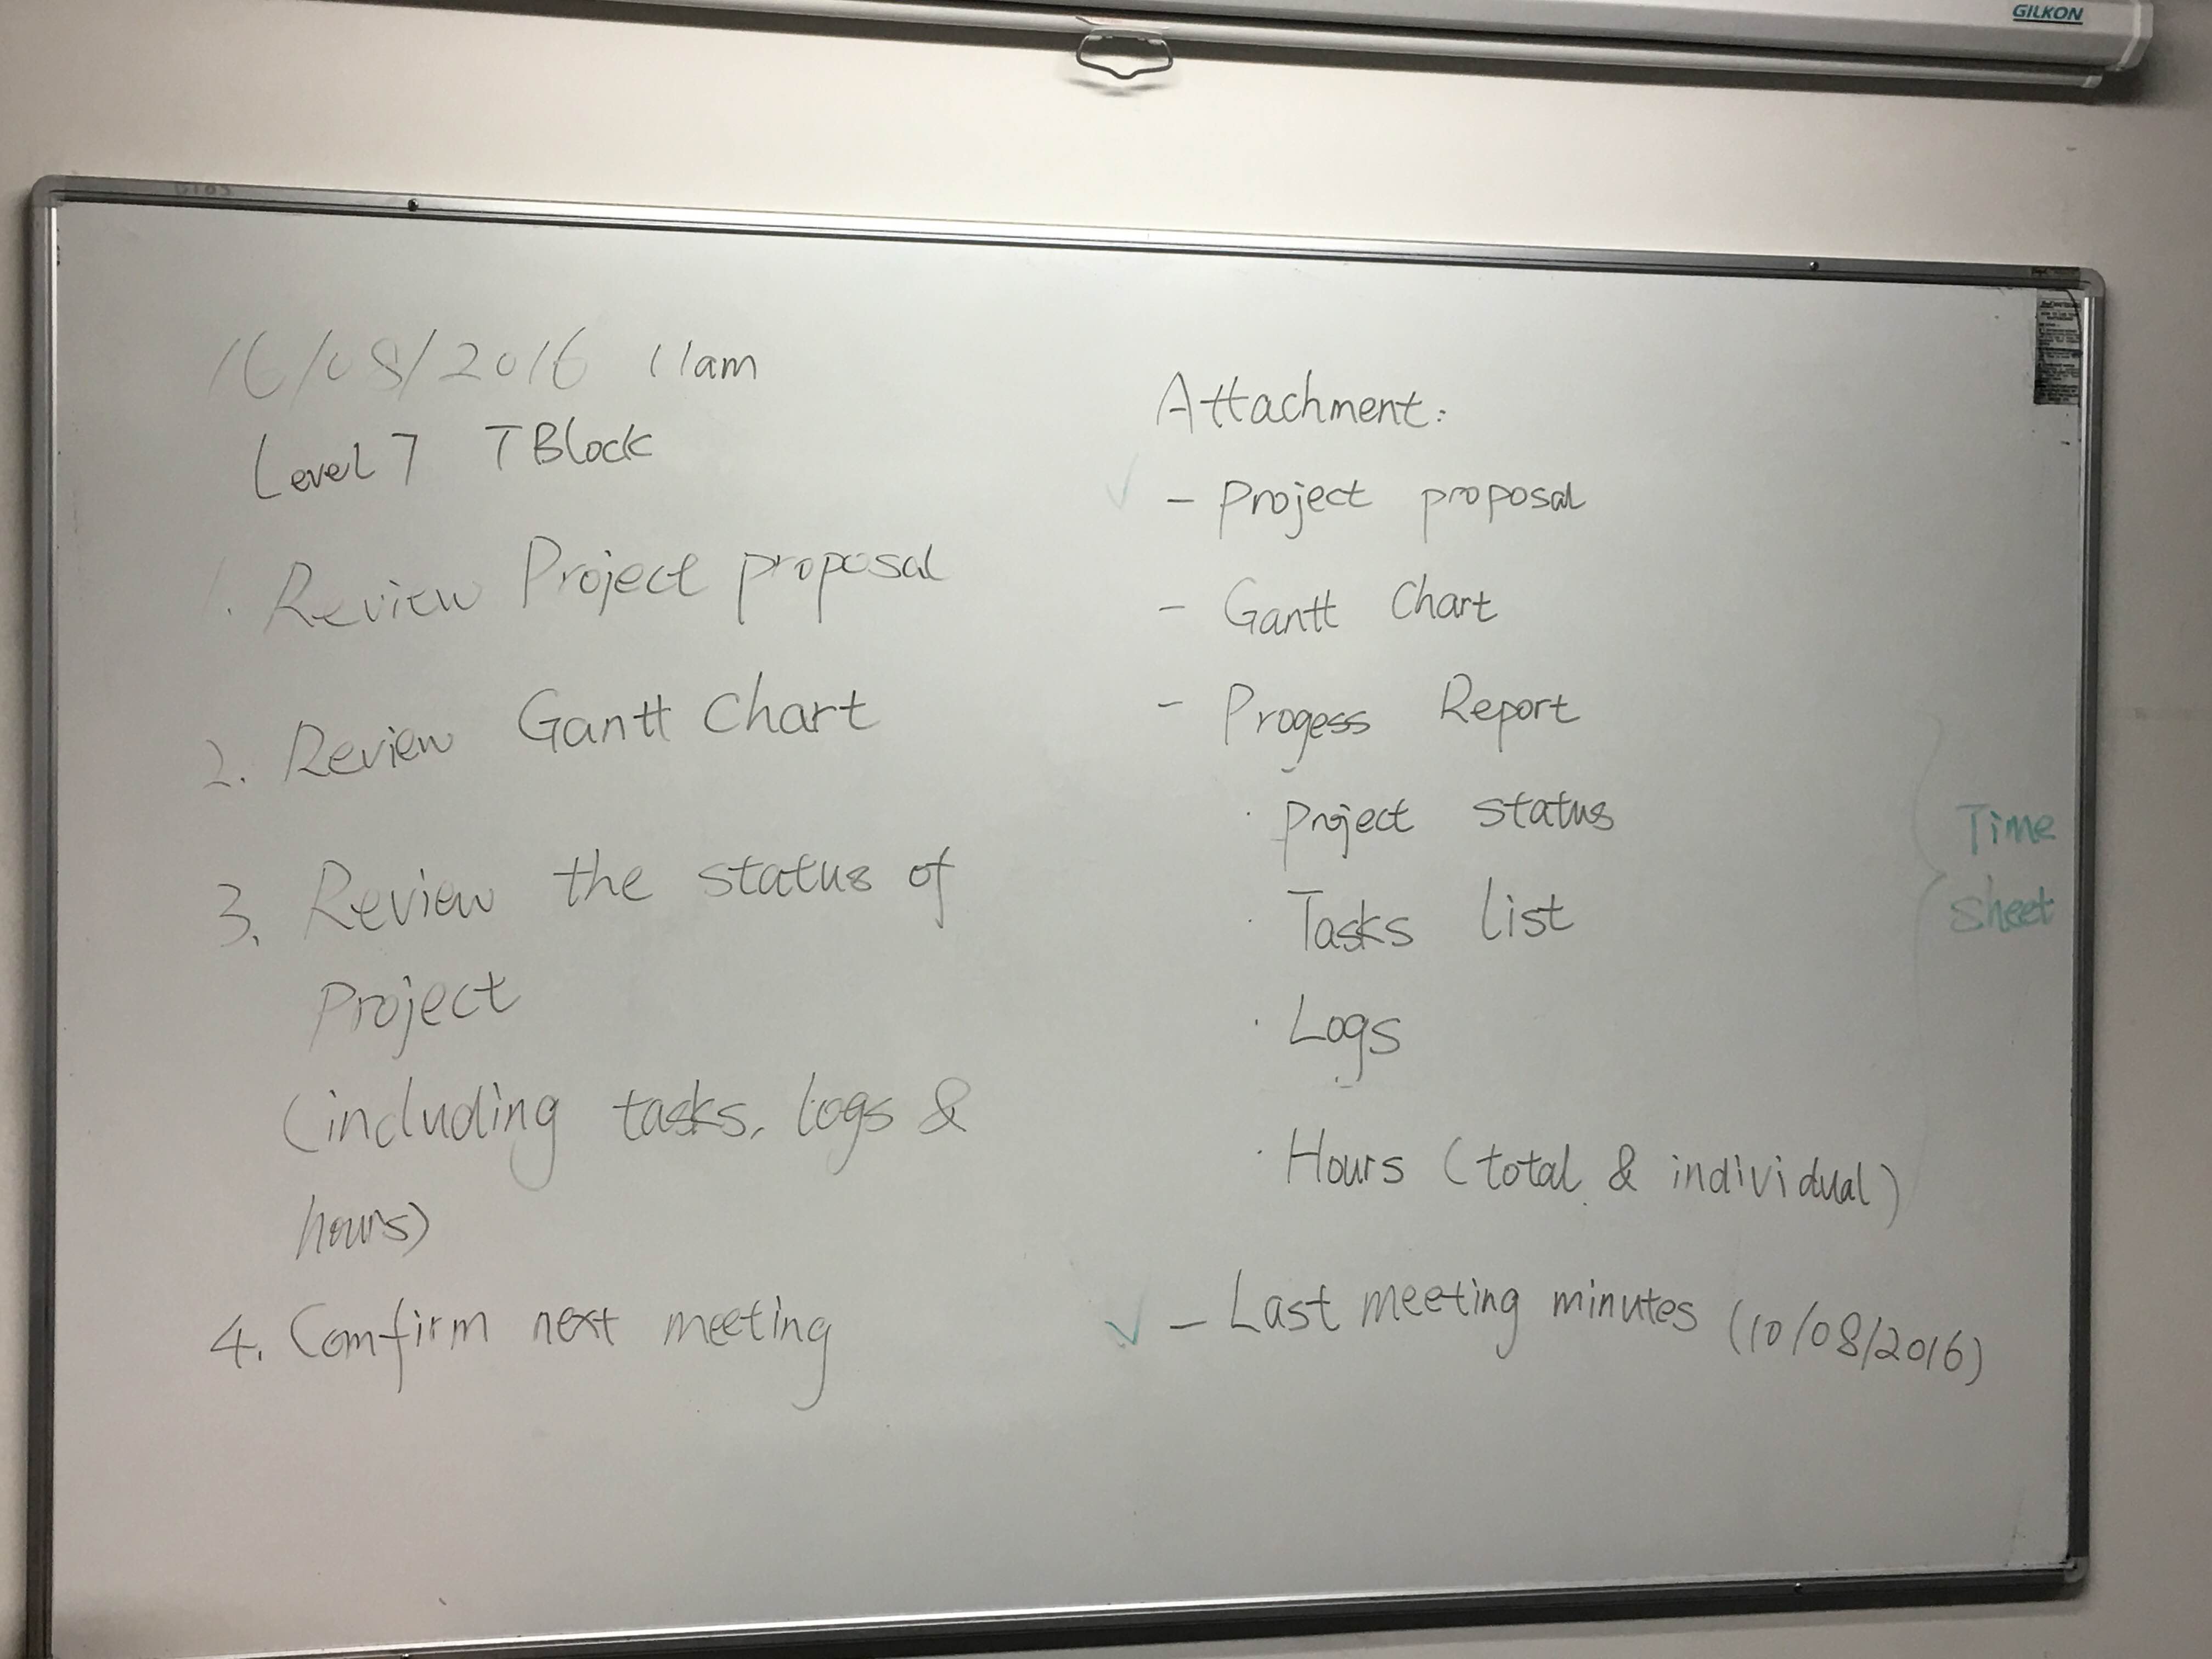 GILKON
16/08/2016 11am
Level 7 T Block
1. Review Project proposal
2. Review Gantt Chart
3. Review the status of
Project
(including tasks, logs &
hours)
4. Comfirm next meeting
Attachment:
✓ - Project proposal
- Gantt Chart
- Progess Report
· Project status
· Tasks list
· Logs
· Hours (total & individual)
Time
sheet
✓ - Last meeting minutes (10/08/2016)